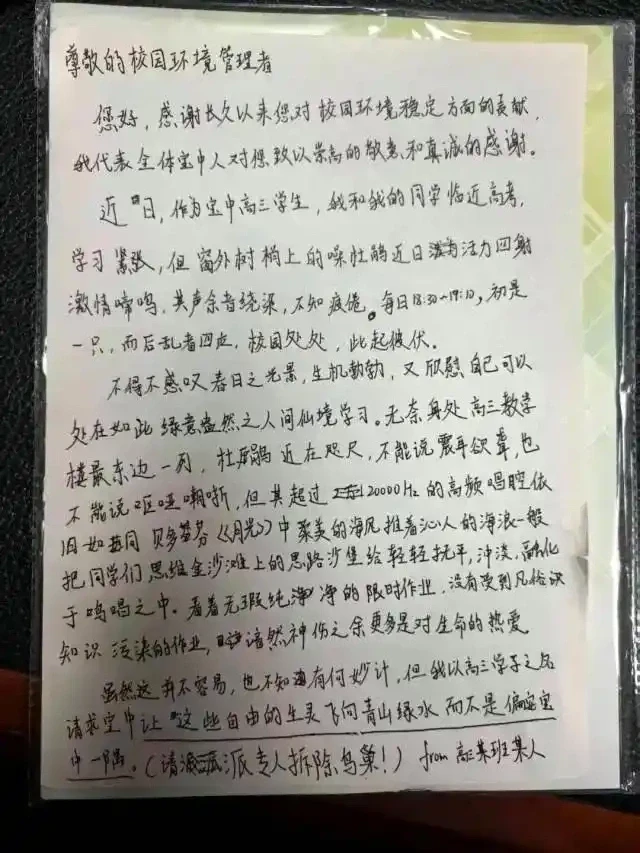 尊敬的校园环境管理者
您好,感谢长久以来您对校园环境稳定方面的贡献,
我代表全体宝中人对您致以崇高的敬意和真诚的感谢。
近日,作为宝中高三学生,我和我的同学临近高考,
学习紧张,但窗外树梢上的噪杜鹃近日活力四射
激情啼鸣,其声余音绕梁,不知疲倦。每日18:30~19:10,初是
一只,而后乱者四应,校园处处,此起彼伏。
不得不感叹春日之光景,生机勃勃,又欣慰自己可以
处在如此绿意盎然之人间仙境学习。无奈身处高三教学
楼最东边一列,杜鹃近在咫尺,不能说震耳欲聋,也
不能说呕哑嘲哳,但其超过20000Hz的高频唱腔依
旧如同贝多芬《月光》中聚美的海风推着沁人的海浪一般
把同学们思维金沙滩上的思路沙堡给轻轻抚平,冲淡,融化
于鸣唱之中。看着无瑕纯净的限时作业,没有受到凡俗识
知识污染的作业,黯然神伤之余更多是对生命的热爱
虽然这并不容易,也不知有何妙计,但我以高三学子之名
请求宝中让这些自由的生灵飞向青山绿水而不是偏安宝
中一隅。(请派专人拆除鸟巢!) from高三某班某人